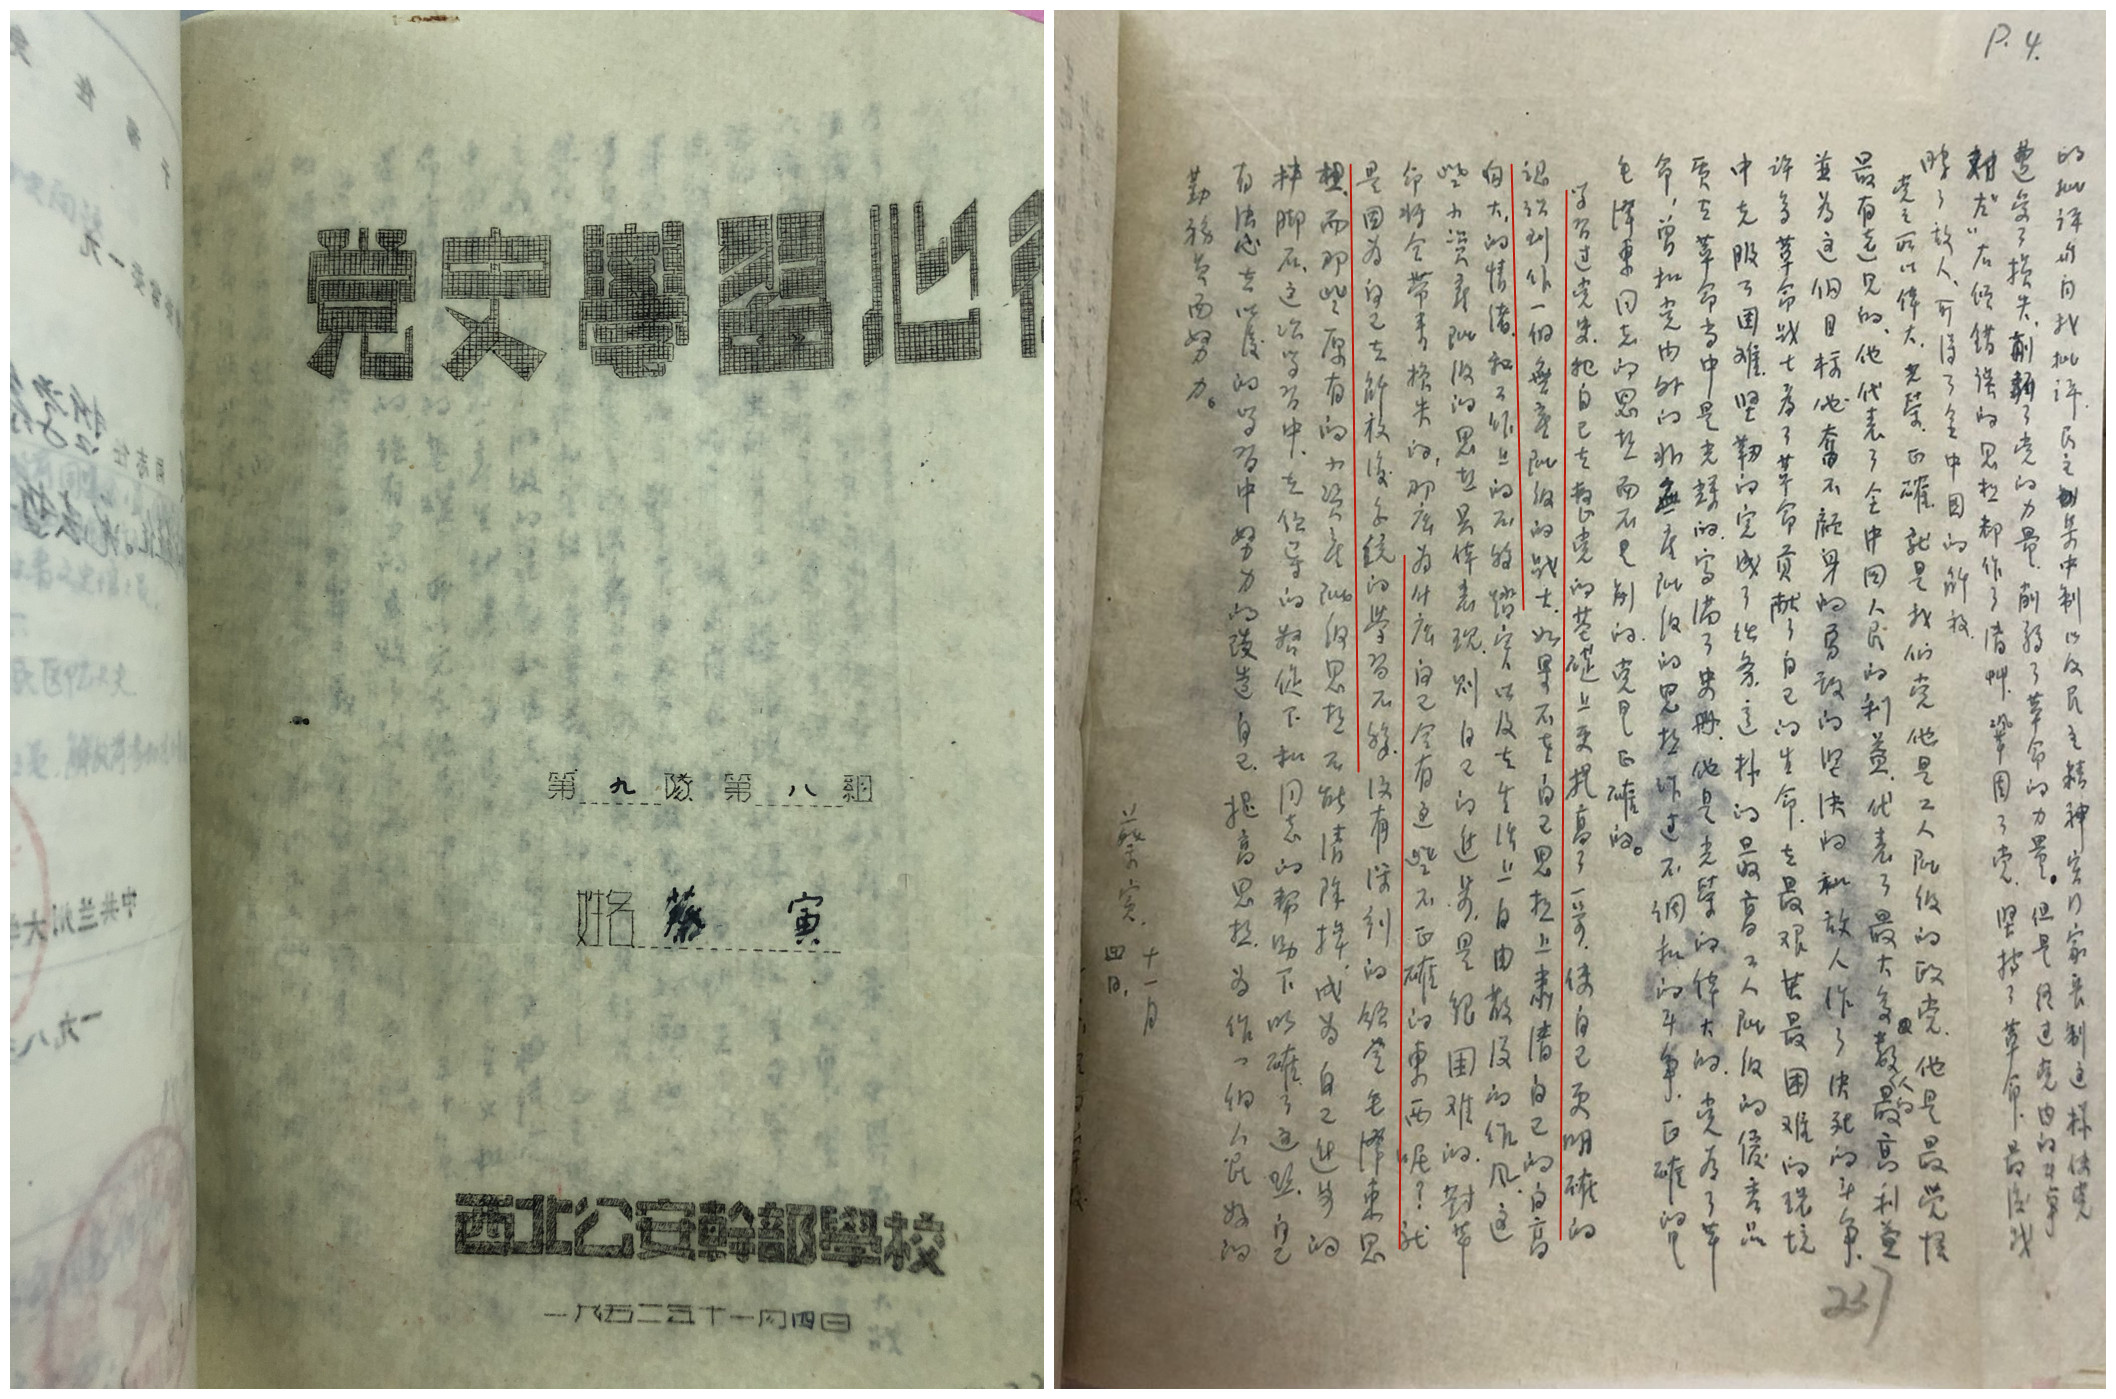 党史學習心得
第九隊第八組
姓名 蔡寅
西北公安幹部學校
一九五二年十一月四日
P.4.
的批評与自我批評.民主集中制以及民主精神实行家長制这样使党
遭受了損失,削弱了党的力量.削弱了革命的力量。但是経过党内的斗争
对"左"右傾錯誤的思想都作了清算.巩固了党.堅持了革命.最後战
勝了敌人.取得了全中国的解放.
党之所以偉大.光榮.正確.就是我們党他是工人阶级的政党.他是最觉悟
最有远见的.他代表了全中国人民的利益.代表了最大多数人的最高利益
並为这個目标他奮不顧身的勇敢的堅決的和敌人作了決死的斗争.
许多革命战士为了革命貢献了自己的生命.在最艰苦最困难的环境
中克服了困难.堅靱的完成了任务.这样的最高工人阶级的優秀品
质在革命当中是光輝的.寫满了史册.他是光榮的偉大的.党为了革
命,曾和党内外的非無产阶级的思想作过不调和的斗争.正確的是
毛澤東同志的思想而不是别的.党是正確的。
学习过党史.把自己在整党的基礎上更提高了一步.使自己更明確的
認識到作一個無產阶级的战士.如果不在自己思想上肃清自己的自高
自大,的情緒.和工作上的不够踏实以及在生活上自由散漫的作风.这
些小資產阶级的思想具体表现.则自己的進步.是很困难的.對革
命将会带来損失的,那麽为什麽自己会有这些不正確的東西呢?就
是因为自己在解放後系統的學習不够.没有深刻的领会毛澤東思
想.而那些原有的小资產阶级思想不能清除掉.成为自己進步的
拌脚石.这次学习中.在领导的督促下和同志的帮助下明確了这点.自己
有决心在以後的学习中努力的改造自己.提高思想.为作一個人民好的
勤務员而努力。
蔡寅.十一月四日.
237